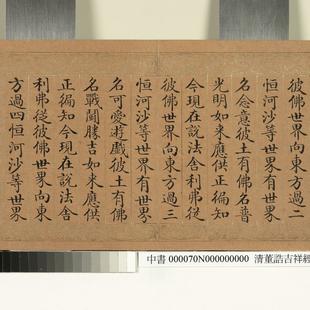 彼佛世界向東方過二
恒河沙等世界有世界
名念意彼土有佛名普
光明如来應供正徧知
今現在說法舎利弗從
彼佛世界向東方過三
恒河沙等世界有世界
名可愛遊戲彼土有佛
名戰鬬勝吉如来應供
正徧知今現在說法舎
利弗從彼佛世界向東
方過四恒河沙等世界
中書 000070N000000000 清董誥吉祥經